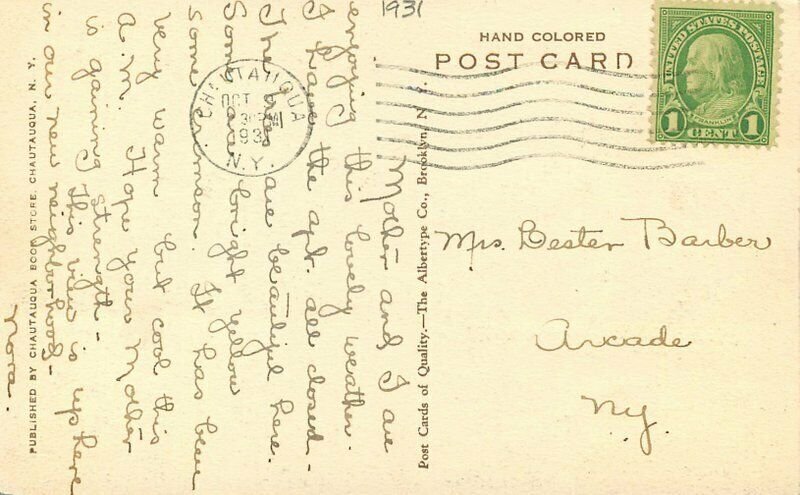 1931
HAND COLORED
POST CARD
UNITED STATES POSTAGE
FRANKLIN
1 CENT 1
CHAUTAUQUA
OCT
30 PM
193
N.Y.
Mother and I are
enjoying this lovely weather.
I have the apt. all closed -
The trees are beautiful here.
Some are bright yellow
some crimson. It has been
very warm but cool this
a.m. Hope your Mother
is gaining strength -
This view is up here
in our new neighborhood -
Nora.
Mrs. Lester Barber
Arcade
Ny.
Post Cards of Quality.—The Albertype Co., Brooklyn, N.
PUBLISHED BY CHAUTAUQUA BOOK STORE, CHAUTAUQUA, N. Y.